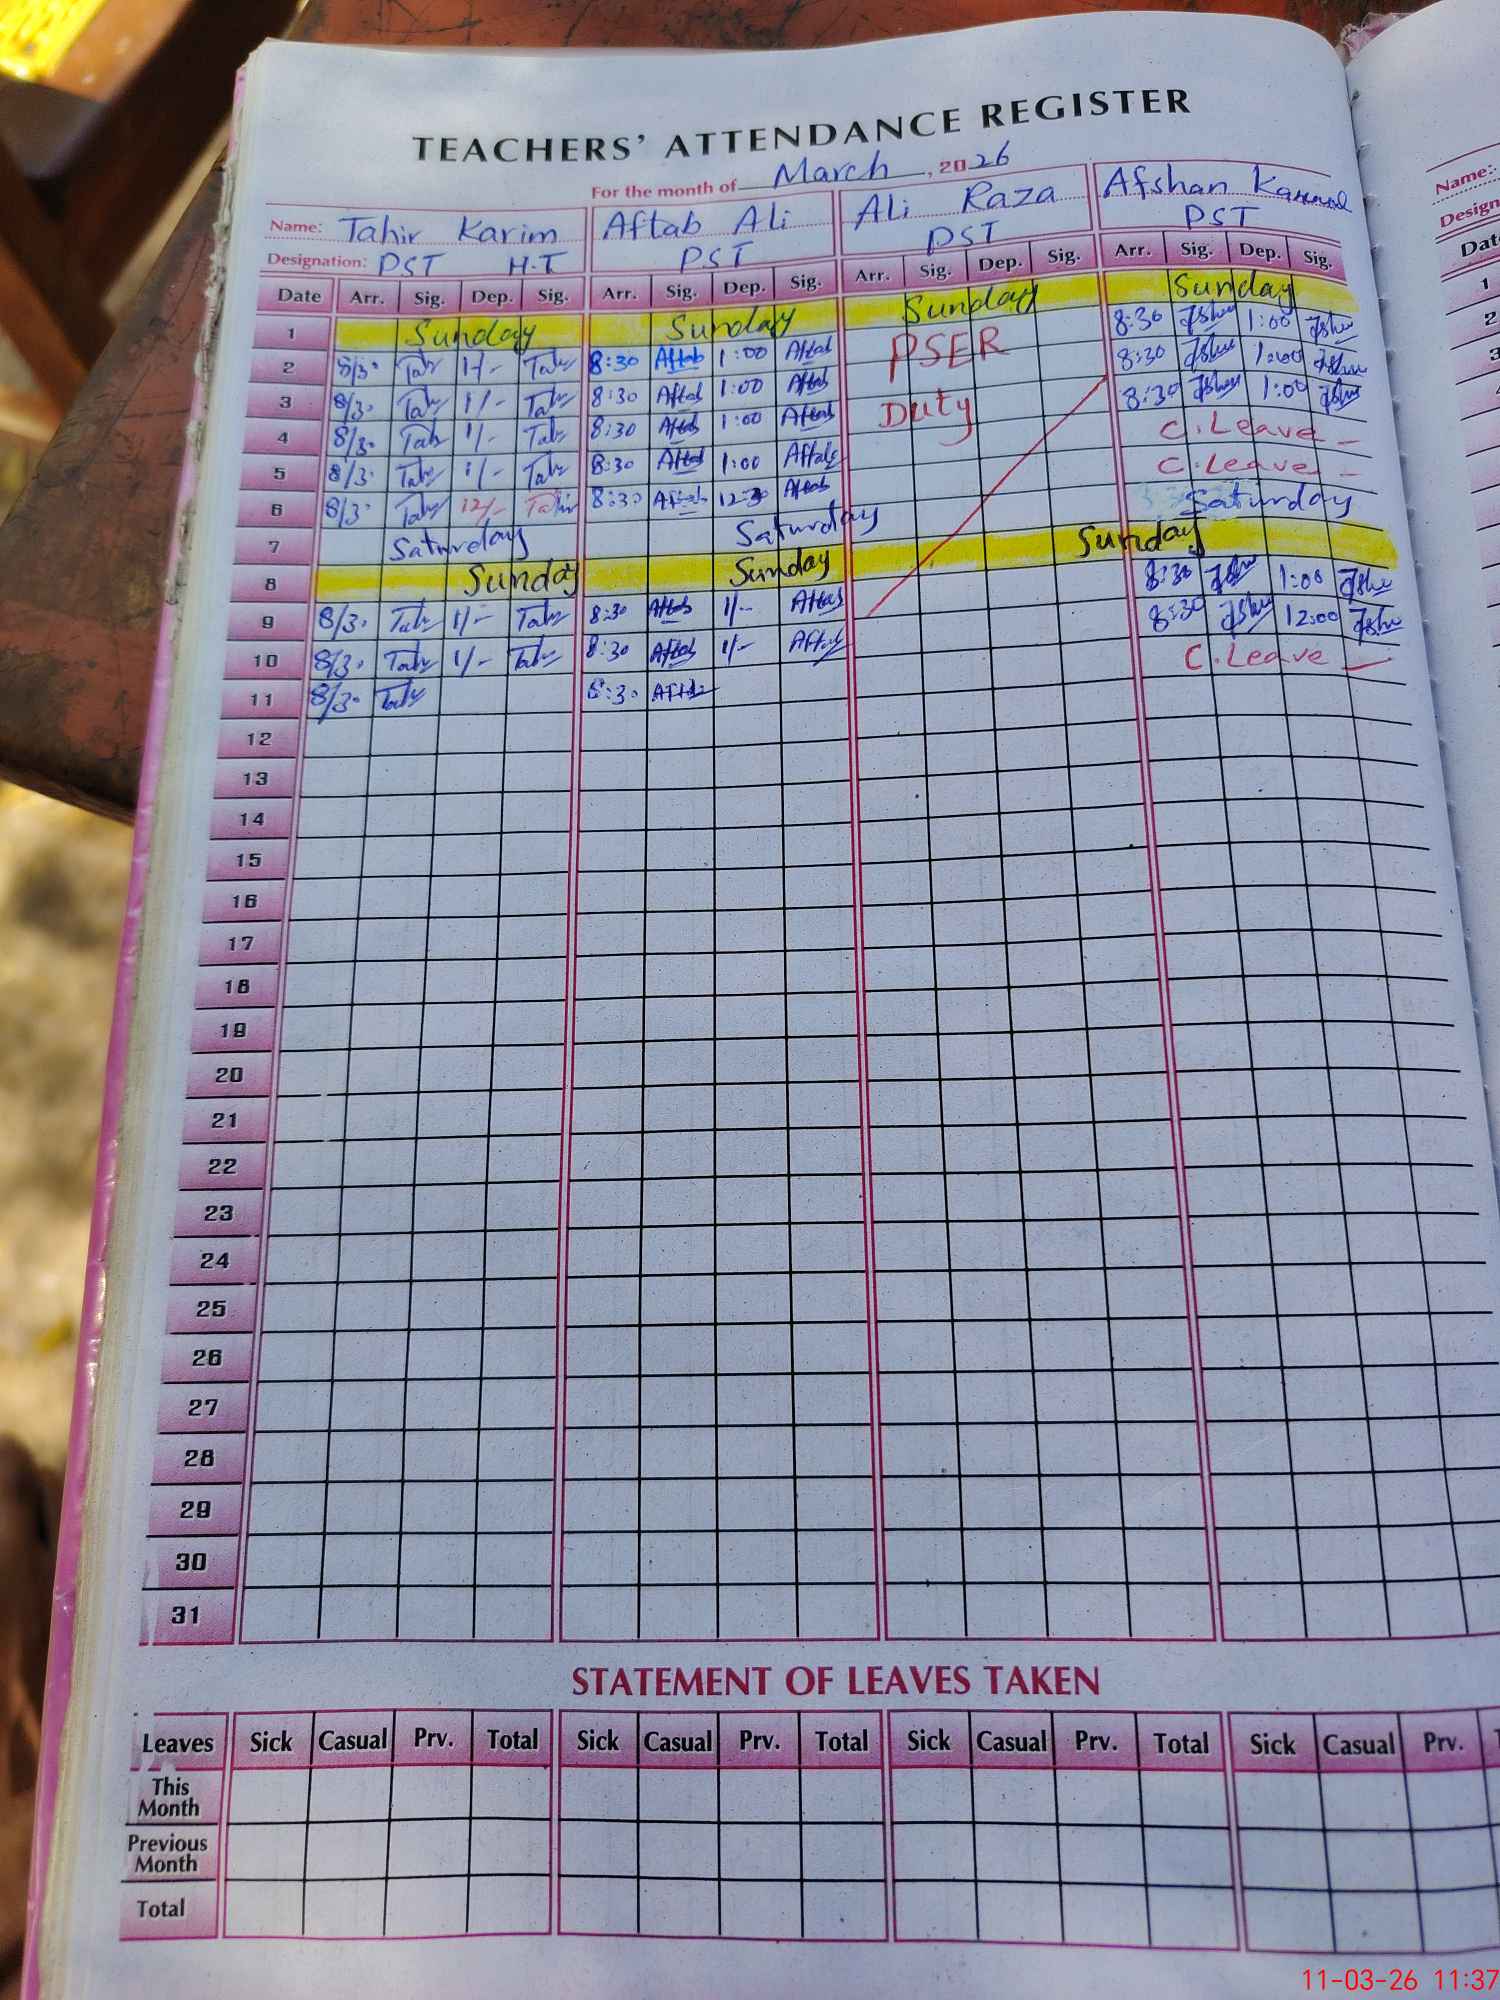 TEACHERS' ATTENDANCE REGISTER
For the month of March, 2026
Name: Tahir Karim Aftab Ali Ali Raza Afshan
Designation: PST H.T PST PST PST
Date Arr. Sig. Dep. Sig. Arr. Sig. Dep. Sig. Arr. Sig. Dep. Sig. Arr. Sig. Dep. Sig.
1 Sunday Sunday Sunday Sunday
2 8/3. 1/- 8:30 Aftab 1:00 Aftab PSER 8:30 1:00
3 8/3. 1/- 8:30 Aftab 1:00 Aftab 8:30 1:00
4 8/3. 1/- 8:30 Aftab 1:00 Aftab Duty 8:30 1:00
5 8/3. 1/- 8:30 Aftab 1:00 Aftab C.Leave -
6 8/3. 12/- Tahir 8:30 Aftab 12:30 Aftab C.Leave -
7 Saturday Saturday Saturday
8 Sunday Sunday Sunday
9 8/3. 1/- 8:30 Aftab 1/- Aftab 8:30 1:00
10 8/3. 1/- 8:30 Aftab 1/- Aftab 8:30 12:00
11 8/3. 8:30 Aftab C.Leave -
12
13
14
15
16
17
18
19
20
21
22
23
24
25
26
27
28
29
30
31
STATEMENT OF LEAVES TAKEN
Leaves Sick Casual Prv. Total Sick Casual Prv. Total Sick Casual Prv. Total Sick Casual Prv.
This Month
Previous Month
Total
Name:
Design
Date
1
2
3
11-03-26 11:37